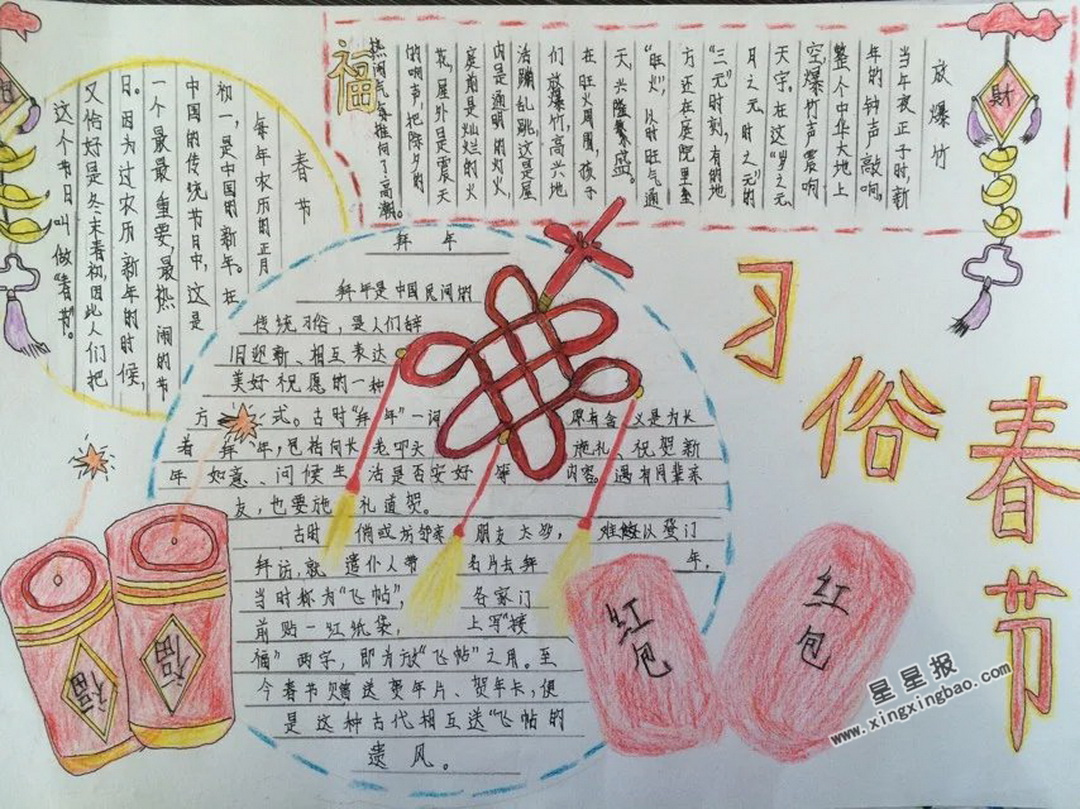 習俗
春节
福
财
放爆竹
当年夜正子时，新
年的钟声敲响，
整个中华大地上
空，爆竹声震响
天宇。在这“岁之元、
月之元、时之元”的
“三元”时刻，有的地
方还在庭院里垒
“旺火”，以时旺气通
天，兴隆繁盛。
在旺火周围，孩子
们放爆竹，高兴地
活蹦乱跳，这是屋
内是通明的灯火，
庭前是灿烂的火
花，屋外是震天
的响声，把除夕的
热闹气推向了高潮。
春节
每年农历的正月
初一，是中国的新年。在
中国的传统节日中，这是
一个最最重要，最热闹的节
日。因为过农历新年的时候，
又恰好是冬末春初，因此人们把
这个节日叫做“春节”。
拜年
拜年是中国民间的
传统习俗，是人们辞
旧迎新、相互表达
美好祝愿的一种
方式。古时“拜年”一词 原有含义是为长
者拜年，包括向长老叩头 施礼、祝贺新
年如意、问候生活是否安好等 内容。遇有同辈亲
友，也要施礼道贺。
古时倘或坊邻亲朋友太多，难以登门
拜访，就遣仆人带名片去拜年，
当时称为“飞帖”，各家门
前贴一红纸袋，上写“接
福”两字，即为放“飞帖”之用。至
今春节赠送贺年片、贺年卡，便
是这种古代相互送“飞帖的
遗风。
福
福
红包
红包
星星报
www.xingxingbao.com